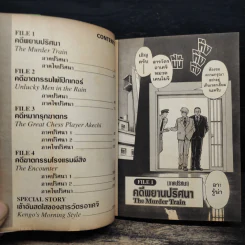 CONTENTS
FILE 1
คดีพยานปริศนา
The Murder Train
ภาคปริศนา
ภาคไขปริศนา
FILE 2
คดีฆาตกรรมไพ่โป๊กเกอร์
Unlucky Men in the Rain
ภาคปริศนา
ภาคไขปริศนา
FILE 3
คดีหมากรุกฆาตกร
The Great Chess Player Akechi
ภาคปริศนา 1
ภาคปริศนา 2
ภาคไขปริศนา
FILE 4
คดีฆาตกรรมโรงแรมผีสิง
The Encounter
ภาคปริศนา 1
ภาคปริศนา 2
ภาคไขปริศนา
SPECIAL STORY
เช้าอันสดใสของสารวัตรอาเคจิ
Kengo's Morning Style
FILE 1
(ภาคปริศนา)
คดีพยานปริศนา
The Murder Train